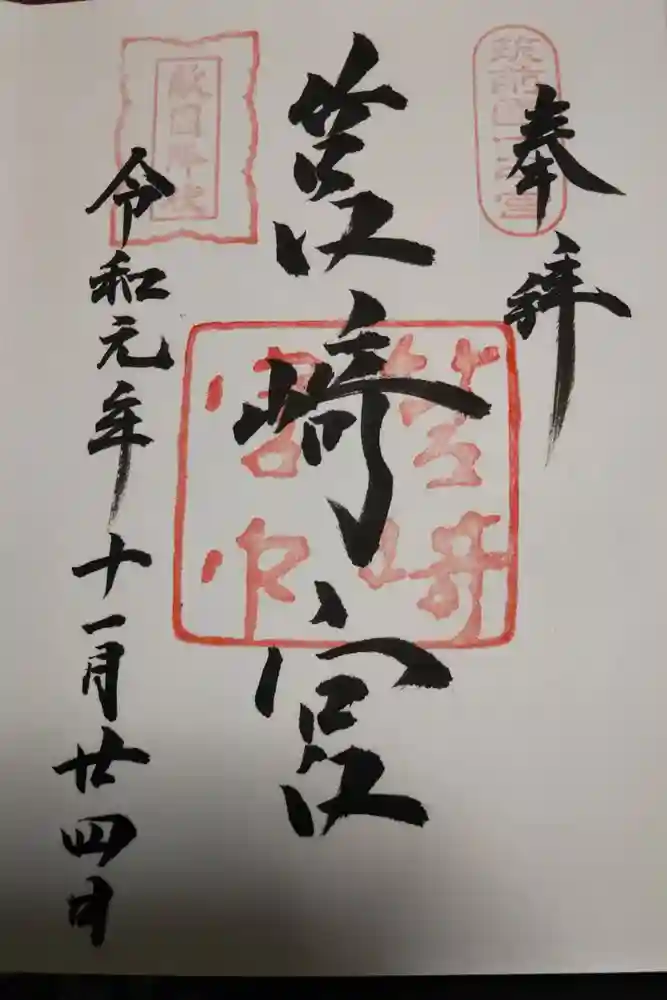 奉拝
筑前國一之宮
筥崎宮
筥崎宮印
敵國降伏
令和元年十一月廿四日